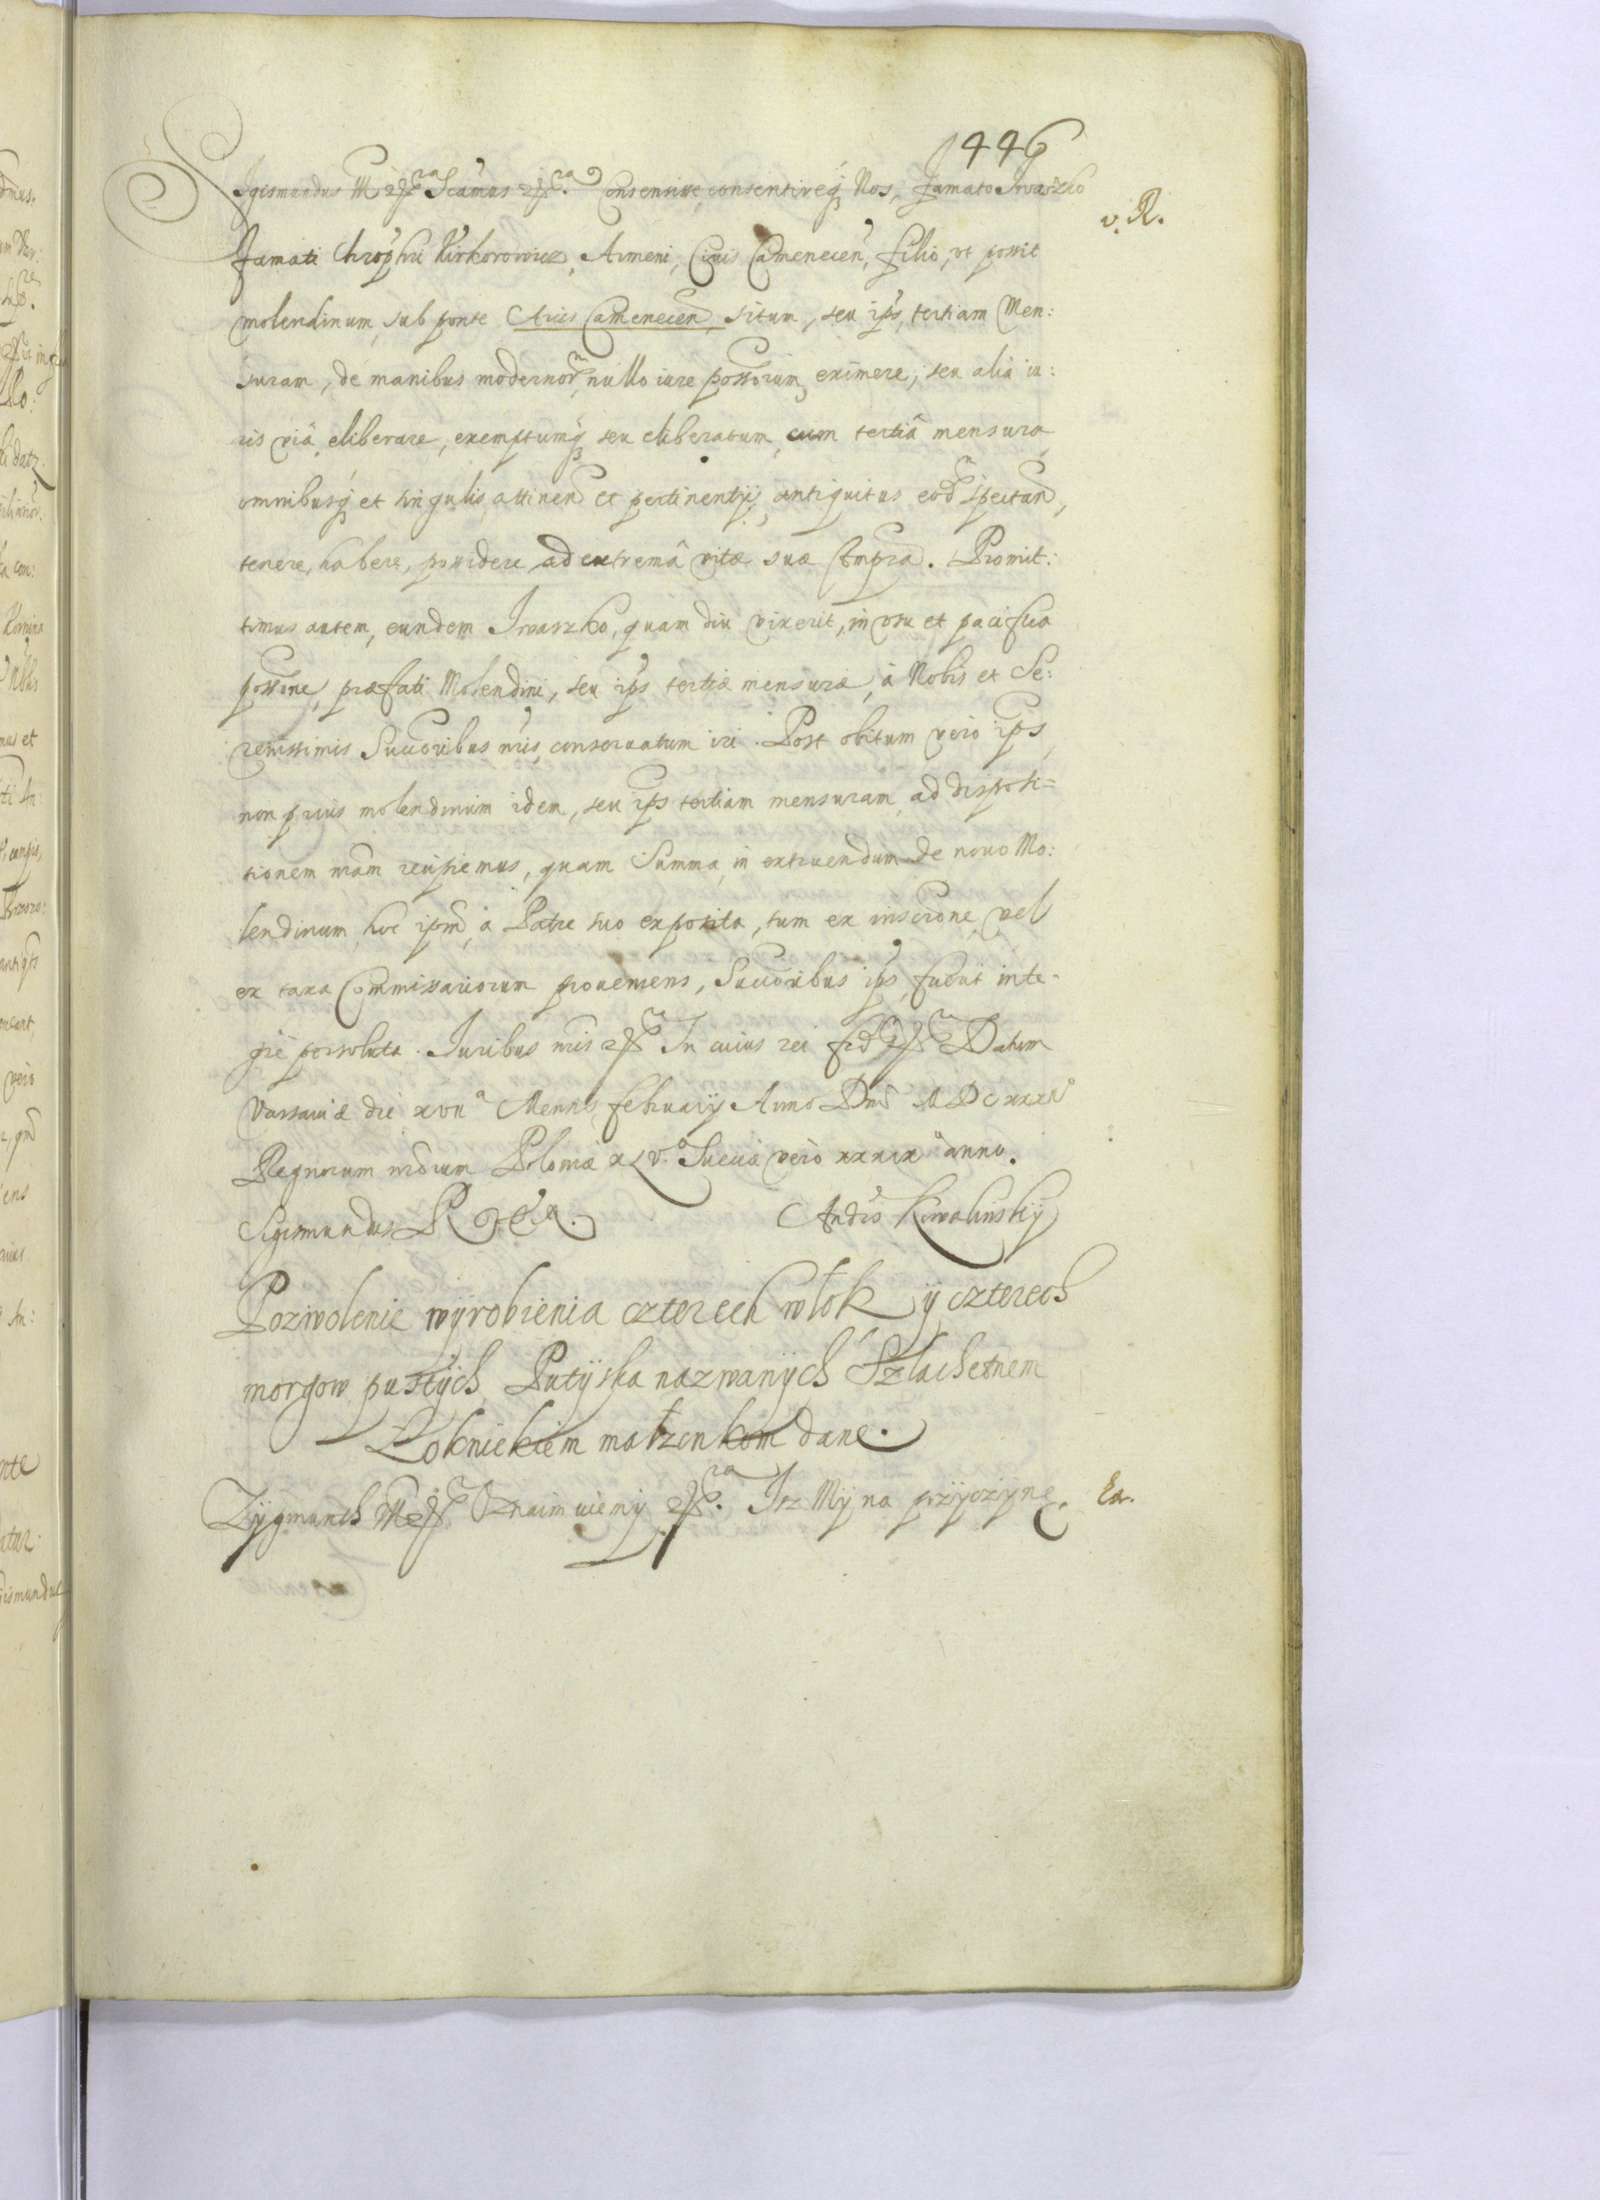 446
Sigismundus III etc. Scamus etc. Consensisse consentireq Nos, Famato Iwaszko
v. R.
Famati Chrophri Kirkorowicz, Armeni, Civis Camenecen, filio, ut possit
molendinum, sub ponte Arcis Camenecen, situm, seu ips, tertiam Men:
suram, de manibus modernor, nullo iure possorum, eximere, seu alia iu:
ris via, eliberare, exemptumq seu eliberatum, cum tertiâ mensura
omnibusq et singulis attinen et pertinentijs, antiquitus eod spectan,
tenere, habere, possidere ad extremâ vitæ suæ tempra. Promit:
timus autem, eundem Iwaszko, quam diu vixerit, in usu et pacifica
possone, præfati Molendini, seu ips tertiæ mensuræ, à Nobis et Se:
renissimis Succoribus nris, conservatum iri. Post obitum vero ips,
non prius molendinum idem, seu ips tertiam mensuram, ad disposi=
tionem nram recipiemus, quam Summa, in extruendum de novo Mo:
lendinum, hoc ipm, à Patre suo exposita, tum ex inscrione, vel
ex taxa Commissariorum proveniens, Succoribus ips, fuerit inte-
gre persoluta. Iuribus nris etc. In cuius rei fid etc. Datum
Varsaviæ die XVII Mensis February Anno Dni MDCXXXII
Regnorum nrorum Poloniæ XLV. Sueciæ vero XXXIX anno.
Sigismundus Rex.
Andrs Kowalinskÿ
Pozwolenie wÿrobienia czterech włok ÿ czterech
morgow pustÿch Putÿska nazwanÿch Szlachetnem
Łoknickiem małzenkom dane.
Zÿgmunth III etc. Oznaimuiemÿ etc. Isz Mÿ na przÿczÿnę
Ex.